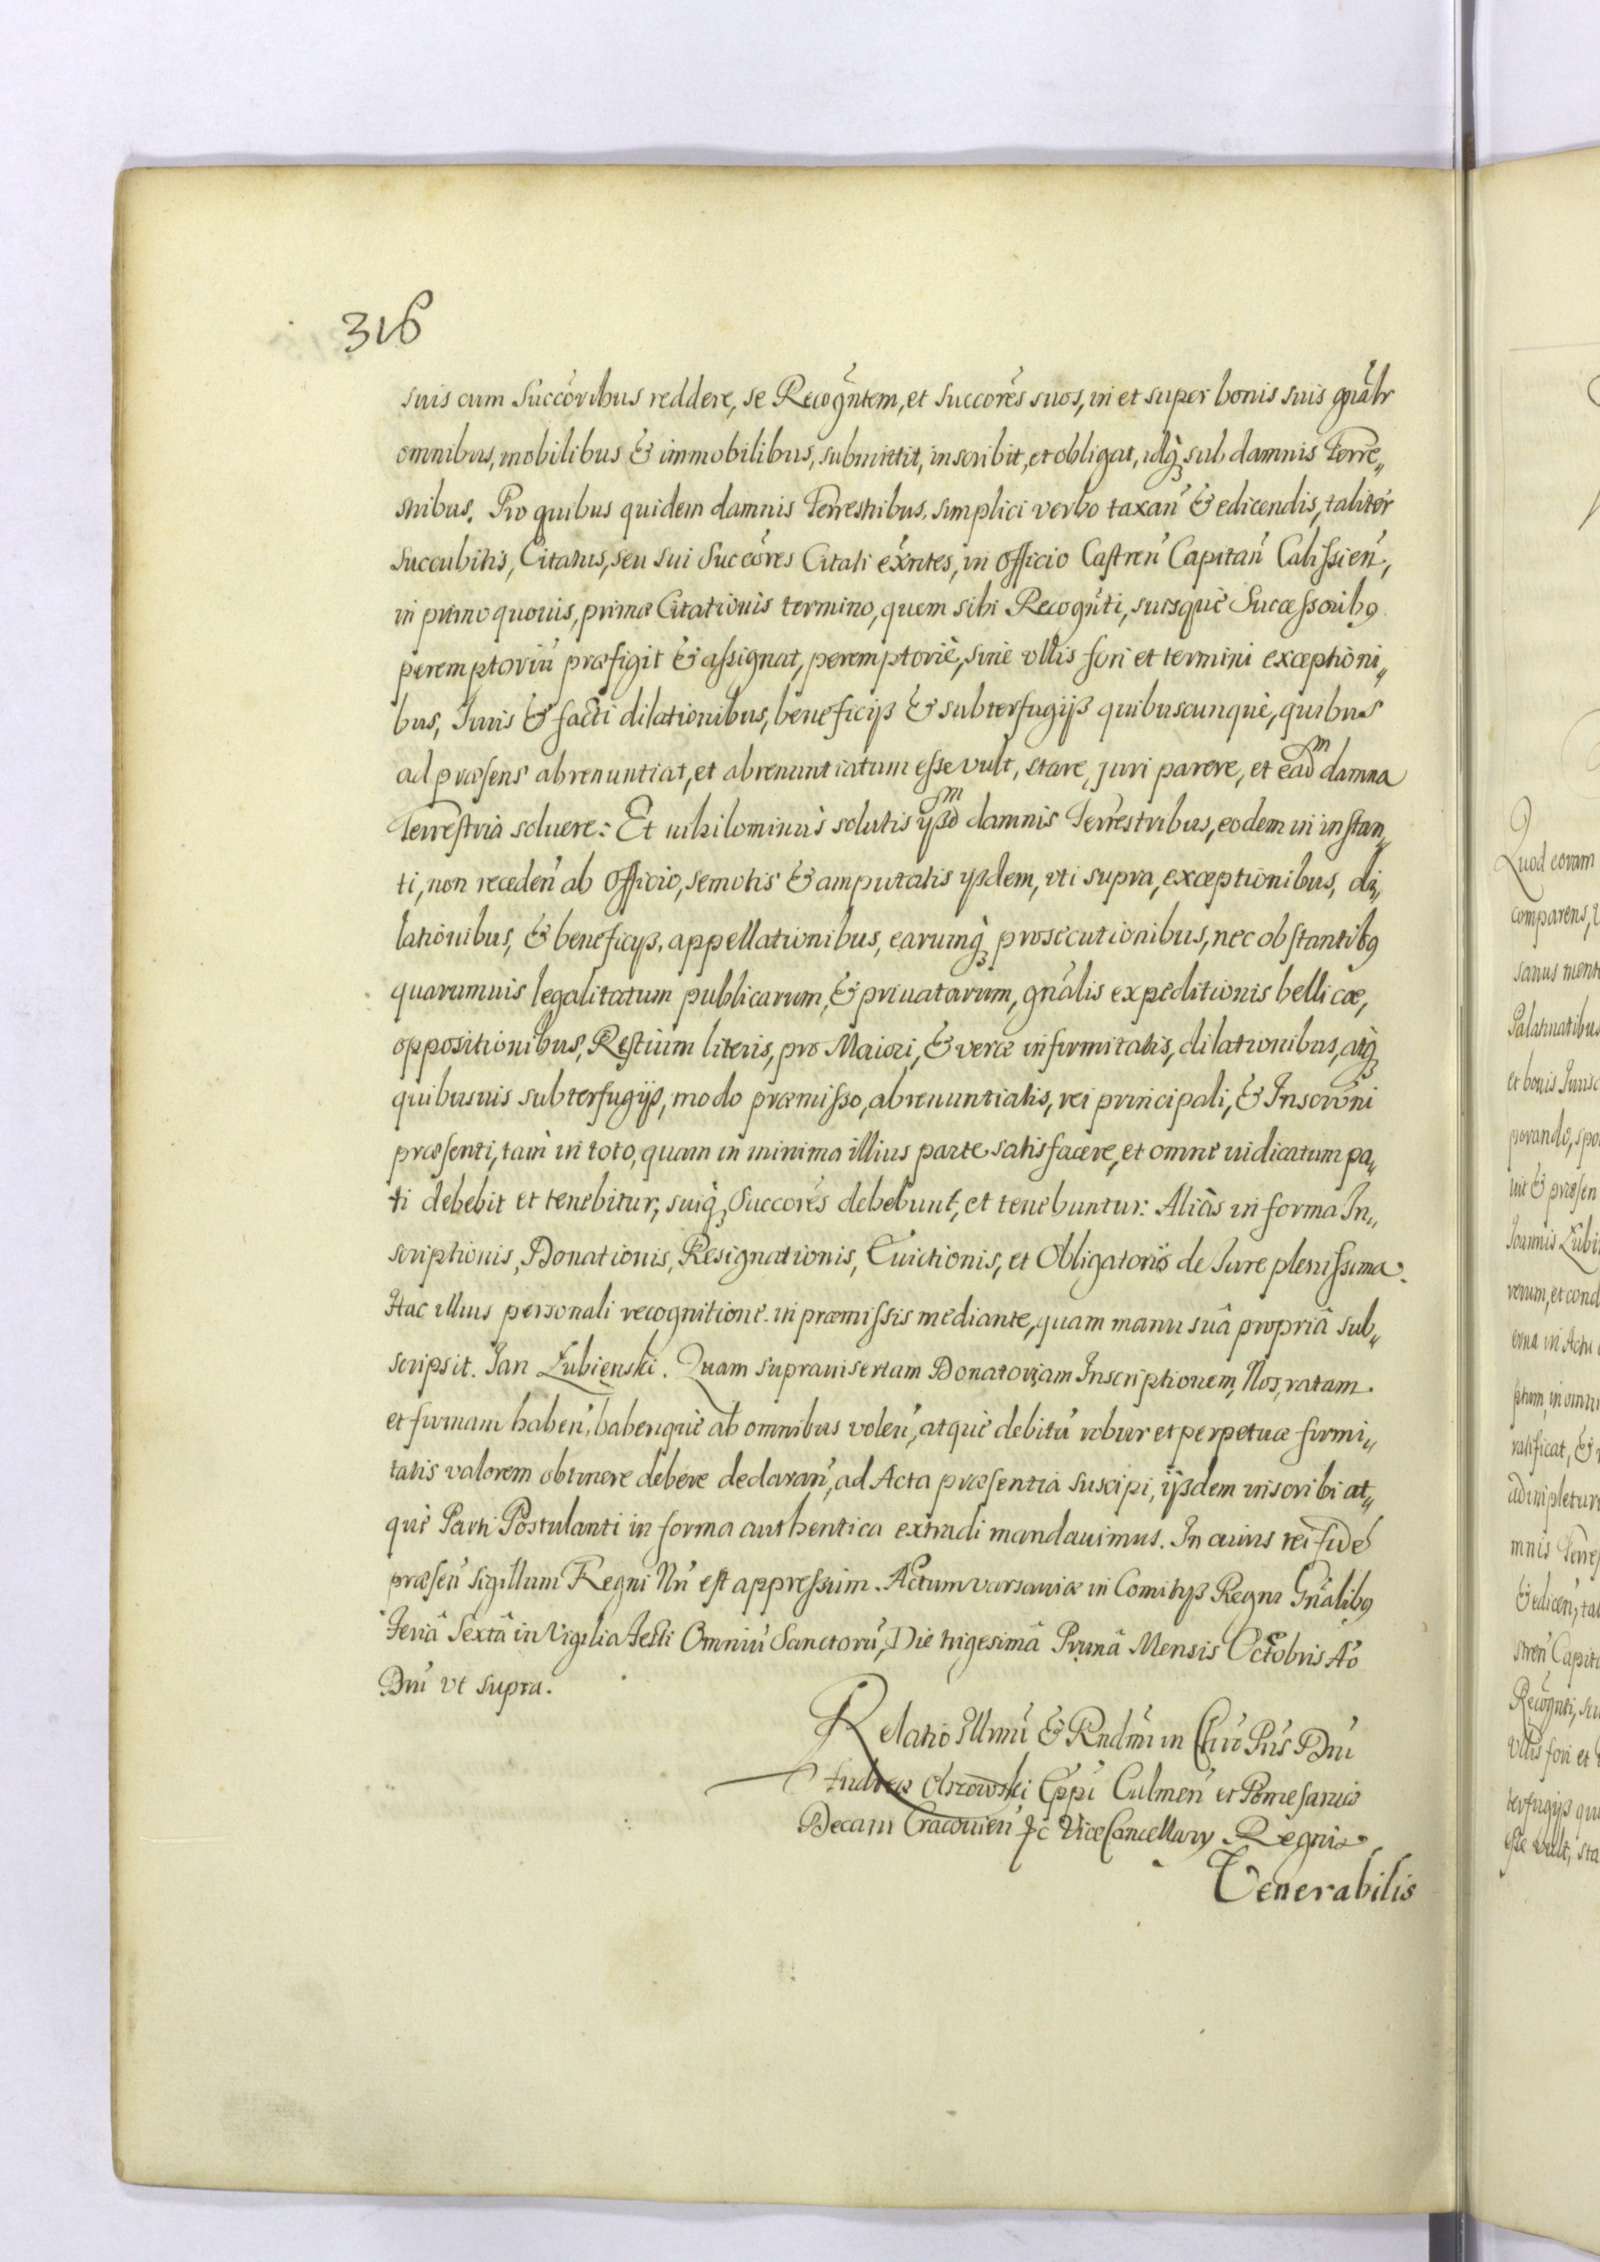 316
suis cum Succõribus reddere, se Recogñtem, et succorẽs suos, in et super bonis suis gnãlr
omnibus, mobilibus & immobilibus, submittit, inscribit, et obligat, idq̀ꝫ sub damnis Terre„
stribus. Pro quibus quidem damnis Terrestribus, simplici verbo taxañ & edicendis, taliter
succubitis, Citatus, seu sui Succõres Citati exñtes, in Officio Castreñ Capitañ Calissieñ,
in primo quouis, primæ Citationis termino, quem sibi Recogñti, suisquè Successoribꝰ
peremptoriũ præfigit & assignat, peremptoriè, sinè vllis fori et termini exceptioni„
bus, Juris & facti dilationibus, beneficijs & subterfugijs quibuscunquè, quibus
ad præsens abrenuntiat, et abrenuntiatum esse vult, stare, juri parere, et eadᵐ damna
Terrestria soluere: Et nihilominùs solutis ijsdᵐ damnis Terrestribus, eodem in instan„
ti, non recedeñ ab Officio, semotis & amputatis ijsdem, vti supra, exceptionibus, di„
lationibus, & beneficijs, appellationibus, earumq̀ꝫ prosecutionibus, nec obstantibꝰ
quarumuis legalitatum publicarum, & priuatarum, gnãlis expeditionis bellicæ,
oppositionibus, Regiuim literis, pro Maiori, & veræ infirmitatis, dilationibus, atq̀ꝫ
quibusuis subterfugijs, modo præmisso, abrenuntiatis, rei principali, & Inscrõni
præsenti, tam in toto, quam in minima illius parte satisfacere, et omne iudicatum pa„
ti debebit et tenebitur, suiq̀ꝫ Succorẽs debebunt, et tenebuntur: Aliàs in forma In„
scriptionis, Donationis, Resignationis, Euictionis, et Obligatoriis de Jure plenissima.
Hac illius personali recognitione in præmissis mediante, quam manu suâ propriâ sub„
scripsit. Jan Łubięnski. Quam suprainsertam Donatoriam Inscriptionem, Nos, ratam
et firmam habeñ, haberiquè ab omnibus voleñ, atquè debitũ robur et perpetuæ firmi„
tatis valorem obtinere debere declarañ, ad Acta præsentia suscipi, ijsdem inscribi at„
què Parti Postulanti in forma authentica extradi mandauimus. In cuius rei fidẽ
præseñ sigillum Regni Nrĩ est appressum. Actum varsauiæ in Comitijs Regni Gnãlibꝰ
Feriâ Sextâ in Vigilia Festi Omniũ Sanctorũ, Die trigesimâ Primâ Mensis Octobris Aõ
Dnĩ vt supra.
Relatio Illmĩ & Rndmĩ in Chrõ Pris Dnĩ
Andreæ Olszowski Eppĩ Culmeñ et Pomesaniæ
Decani Cracouieñ &c ViceCancellarij Regni
Venerabilis